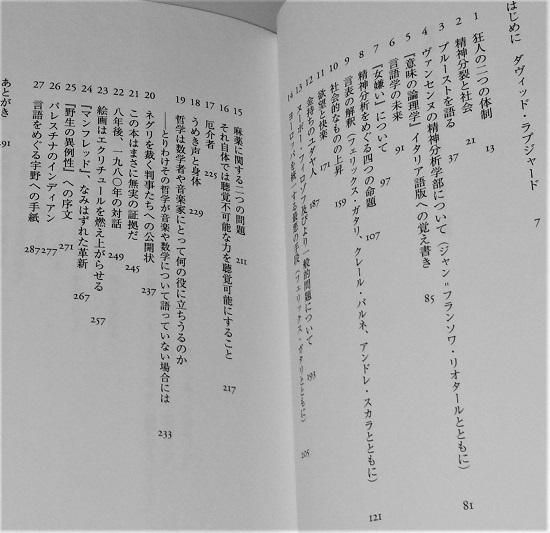 はじめに ダヴィッド・ラプジャード 7
1 狂人の二つの体制 13
2 精神分裂と社会 21
3 プルーストを語る 37
4 ヴァンセンヌの精神分析学部について(ジャン=フランソワ・リオタールとともに) 81
5 『意味の論理学』イタリア語版への覚え書き 85
6 言語学の未来 91
7 『女嫌い』について 97
8 精神分析をめぐる四つの命題 107
9 言表の解釈(フェリックス・ガタリ、クレール・パルネ、アンドレ・スカラとともに) 121
10 社会的なものの上昇 159
11 欲望と快楽 171
12 金持ちのユダヤ人 187
13 ヌーボー・フィロゾフ及びより一般的問題について 193
14 ヨーロッパを統一する最悪の手段(フェリックス・ガタリとともに) 205
15 麻薬に関する二つの問題 211
16 それ自体では聴覚不可能な力を聴覚可能にすること 217
17 厄介者 225
18 うめき声と身体 229
19 哲学は数学者や音楽家にとって何の役に立ちうるのか
――とりわけその哲学が音楽や数学について語っていない場合には 233
20 ネグリを裁く判事たちへの公開状 237
21 この本はまさに無実の証拠だ 245
22 八年後、一九八〇年の対話 249
23 絵画はエクリチュールを燃え上がらせる 257
24 『マンフレッド』、なみはずれた革新 267
25 『野生の異例性』への序文 271
26 パレスチナのインディアン 277
27 言語をめぐる宇野への手紙 287
あとがき 291